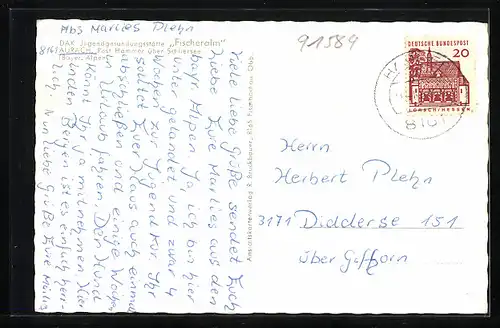 Abs Marlies Plehn
DAK Jugendgesundungsstätte „Fischeralm"
816 AURACH, Post Hammer über Schliersee
(Bayer. Alpen)
91584
DEUTSCHE BUNDESPOST
20
LORSCH/HESSEN
Viele liebe Grüße sendet Euch
liebe Eure Marlies aus den
bayr. Alpen. Ja, ich bin hier
unten gelandet und zwar 4
Wochen zur Jugendkur. Ihr
solltet Euer Haus auch einmal
abschließen und einige Wochen
in Urlaub fahren. Den Hund
könnt Ihr ja mitnehmen. Hier
in den Bergen ist es einfach herr-
lich. Nun liebe Grüße Eure Marlies
Ansichtskartenverlag R. Bruckbauer
Herrn
Herbert Plehn
3171 Didderse 151
über Gifhorn